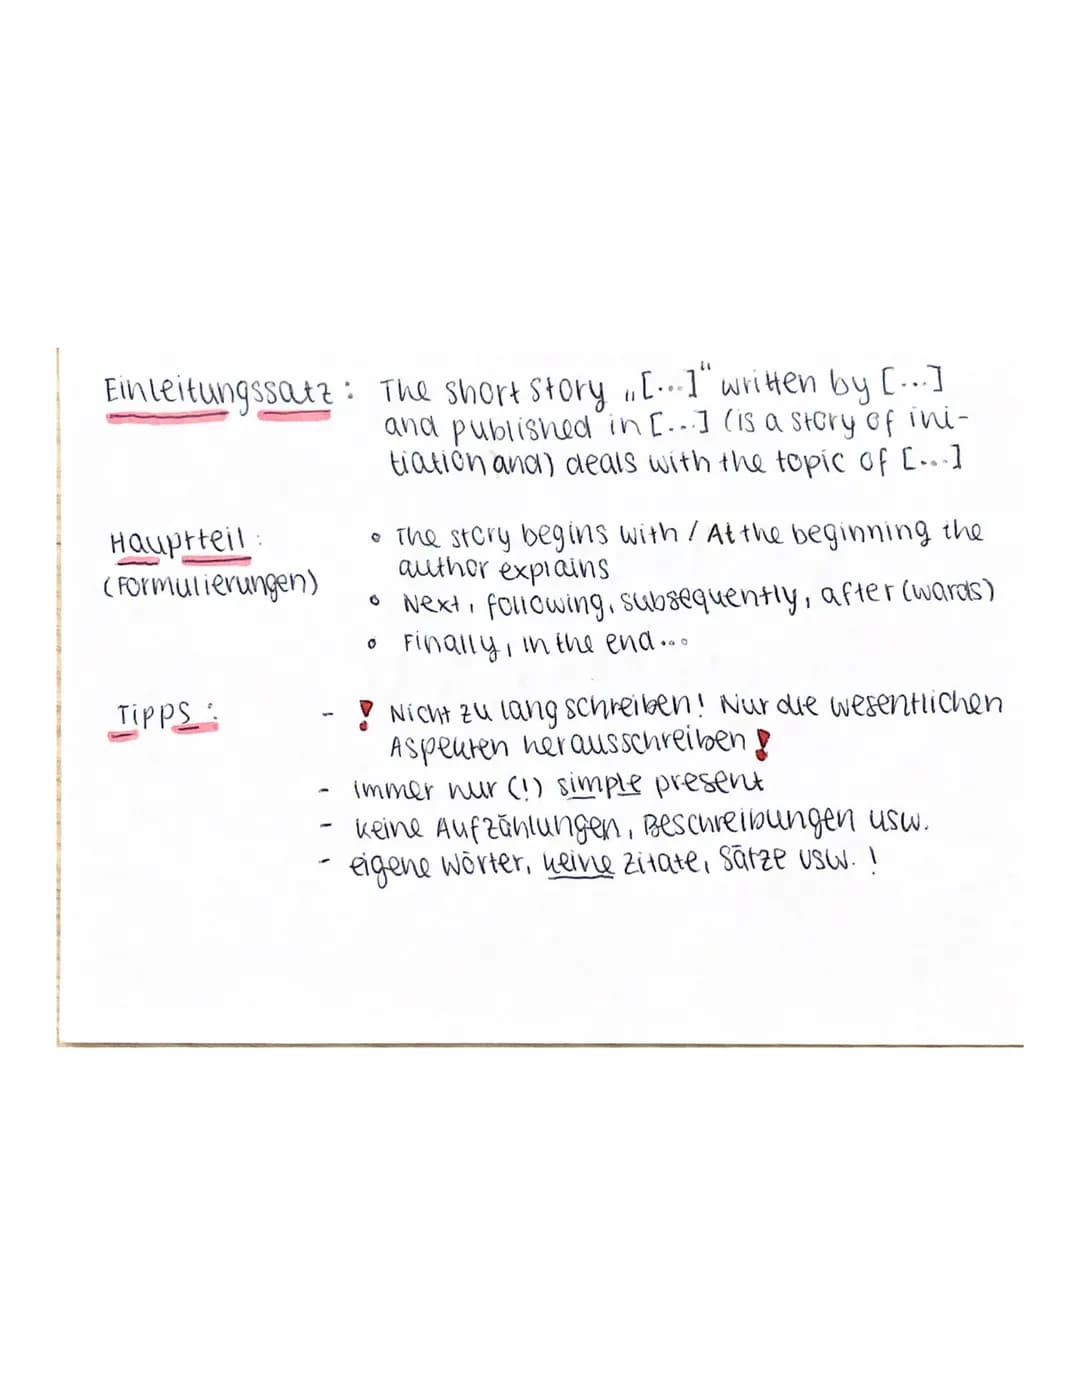 Einleitungssatz: The short story „[...]“ written by [...]
and published in [...] (is a story of ini-
tiation and) deals with the topic of [...]
Hauptteil:
(Formulierungen)
• The story begins with / At the beginning the
author explains
• Next, following, subsequently, after (wards)
• Finally, in the end...
Tipps:
- ! Nicht zu lang schreiben! Nur die wesentlichen
Aspekten herausschreiben!
- immer nur (!) simple present
- keine Aufzählungen, Beschreibungen usw.
- eigene Wörter, keine Zitate, Sätze usw. !